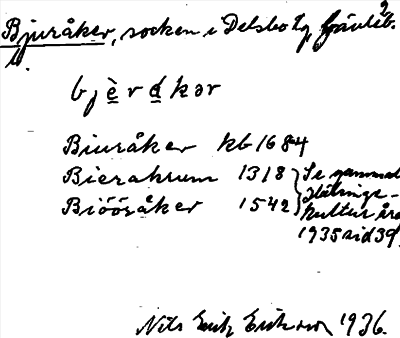 Bjuråker, socken i Delsbo tg, Gävleb.
l.
bjèrdkər
Biuråker kb 1684
Bierakrum 1318
Biöösåker 1542
Se gammal
Hälsinge-
kultur års
1935 sid 39
Nils Erik Eriksson 1936.